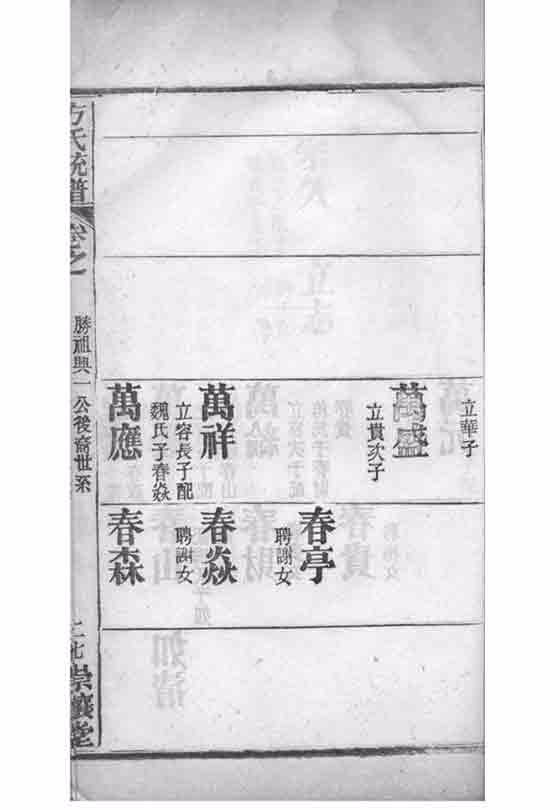 立華子
萬盛
立貴次子
萬祥
立容長子配
魏氏子春焱
萬應
春亭
聘謝女
春焱
聘謝女
春森
方氏統譜
卷之一
勝祖興一公後裔世系
二七
崇讓堂